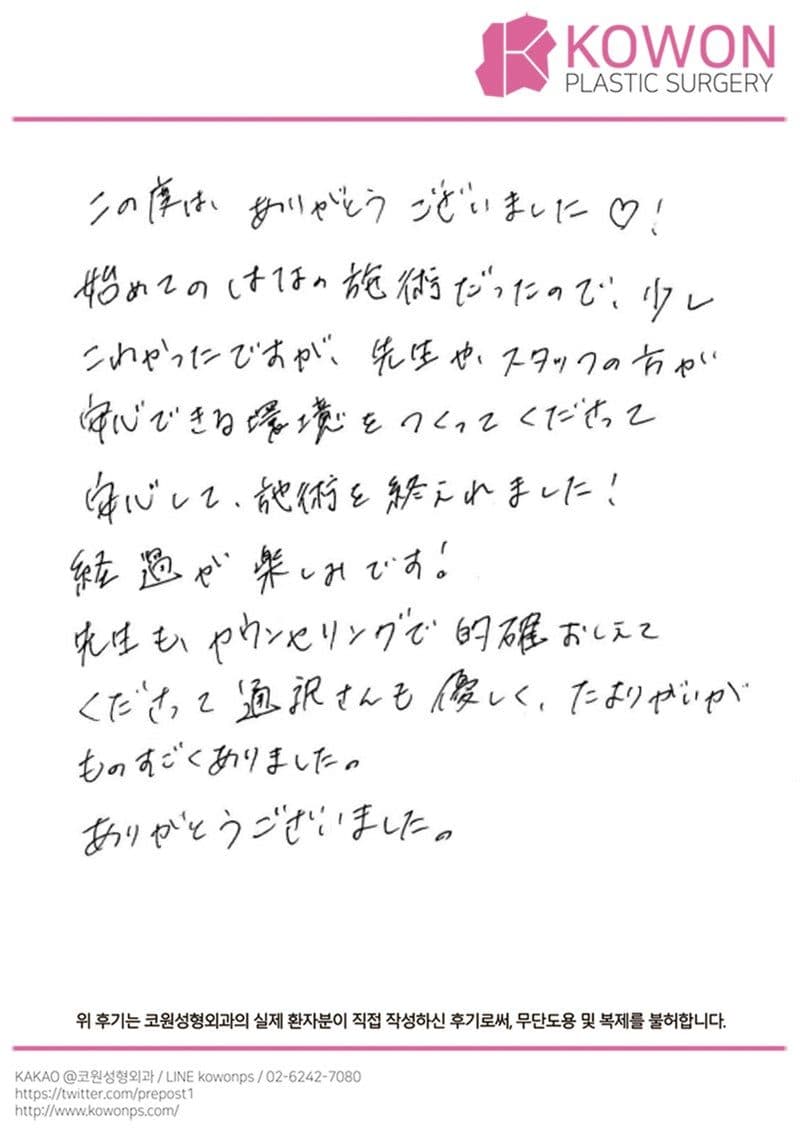 KOWON
PLASTIC SURGERY
この度は、ありがとうございました♡!
始めての の施術だったので、少し
これかったですが、先生や、スタッフの方が
安心できる環境をつくってくださって
安心して、施術を終えれました!
経過が楽しみです!
先生も、カウンセリングで的確おしえて
くださって通訳さんも優しく、たよりがいが
ものすごくありました。
ありがとうございました。
위 후기는 코원성형외과의 실제 환자분이 직접 작성하신 후기로써, 무단도용 및 복제를 불허합니다.
KAKAO @코원성형외과 / LINE kowonps / 02-6242-7080
https://twitter.com/prepost1
http://www.kowonps.com/